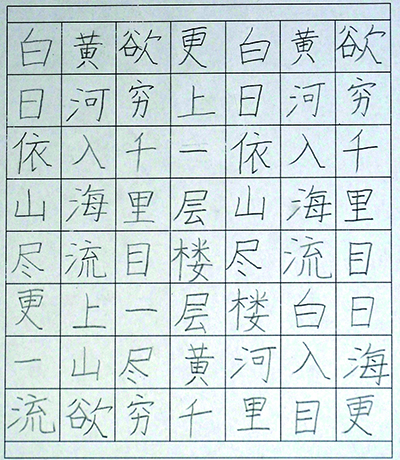 白黄欲更白黄欲
日河穷上日河穷
依入千一依入千
山海里层山海里
尽流目楼尽流目
更上一层楼白日
一山尽黄河入海
流欲穷千里目更